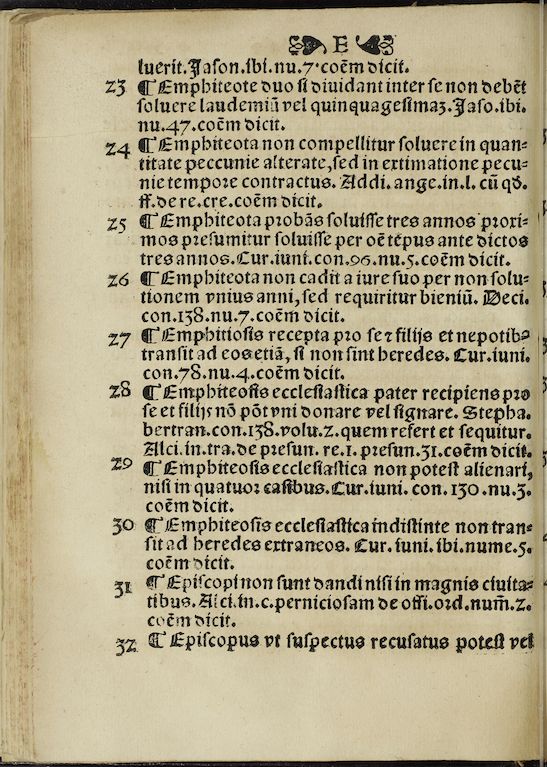 E
luerit. Jason. ibi. nu. 7. coēm dicit.
23 ¶ Emphiteote duo si diuidant inter se non debēt
soluere laudemiū vel quinquagesimaꝫ. Jaso. ibi.
nu. 47. coēm dicit.
24 ¶ Emphiteota non compellitur soluere in quan-
titate peccunie alterate, sed in extimatione pecu-
nie tempore contractus. Addi. ange. in. l. cū qd.
ff. de re. cre. coēm dicit.
25 ¶ Emphiteota probās soluisse tres annos proxi-
mos presumitur soluisse per oē tēpus ante dictos
tres annos. Cur. iuni. con. 96. nu. 5. coēm dicit.
26 ¶ Emphiteota non cadit a iure suo per non solu-
tionem vnius anni, sed requiritur bieniū. Deci.
con. 138. nu. 7. coēm dicit.
27 ¶ Emphitiosis recepta pro se ⁊ filijs et nepotibꝰ
transit ad eos etiā, si non sint heredes. Cur. iuni.
con. 78. nu. 4. coēm dicit.
28 ¶ Emphiteosis ecclesiastica pater recipiens pro
se et filijs nō pōt vni donare vel signare. Stepha.
bertran. con. 138. volu. 2. quem refert et sequitur.
Alci. in. tra. de presun. re. 1. presun. 31. coēm dicit.
29 ¶ Emphiteosis ecclesiastica non potest alienari,
nisi in quatuor casibus. Cur. iuni. con. 130. nu. 3.
coēm dicit.
30 ¶ Emphiteosis ecclesiastica indistinte non tran-
sit ad heredes extraneos. Cur. iuni. ibi. nume. 5.
coēm dicit.
31 ¶ Episcopi non sunt dandi nisi in magnis ciuita-
tibus. Alci. in. c. perniciosam de offi. ord. num̄. 2.
coēm dicit.
32 ¶ Episcopus vt suspectus recusatus potest vel